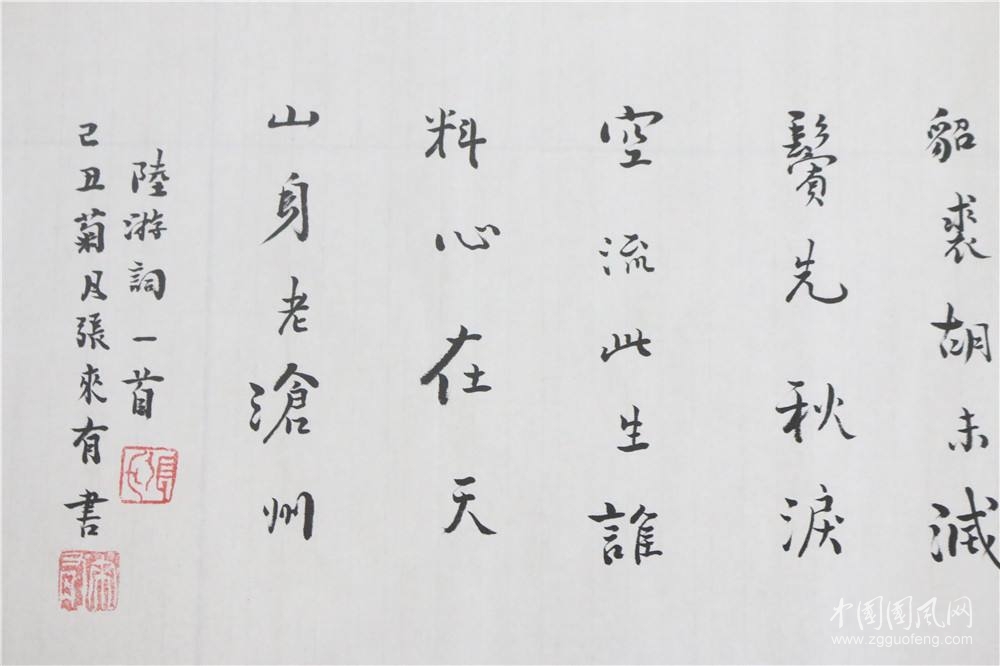 貂裘胡未減
鬢先秋淚
空流此生誰
料心在天
山身老滄州
陸游詞一首
己丑菊月張來有書
張氏
來有
中国國风网
www.zgguofeng.com